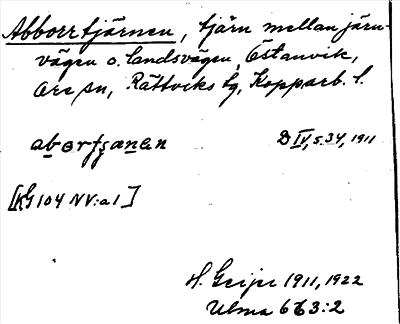 Abborrtjärnen, tjärn mellan järn-
vägen o. landsvägen, Östanvik,
Ore sn, Rättviks tg, Kopparb. l.
D IV, s. 34, 1911
[KG 104 NV:a1]
H. Geijer 1911, 1922
Ulma 663:2